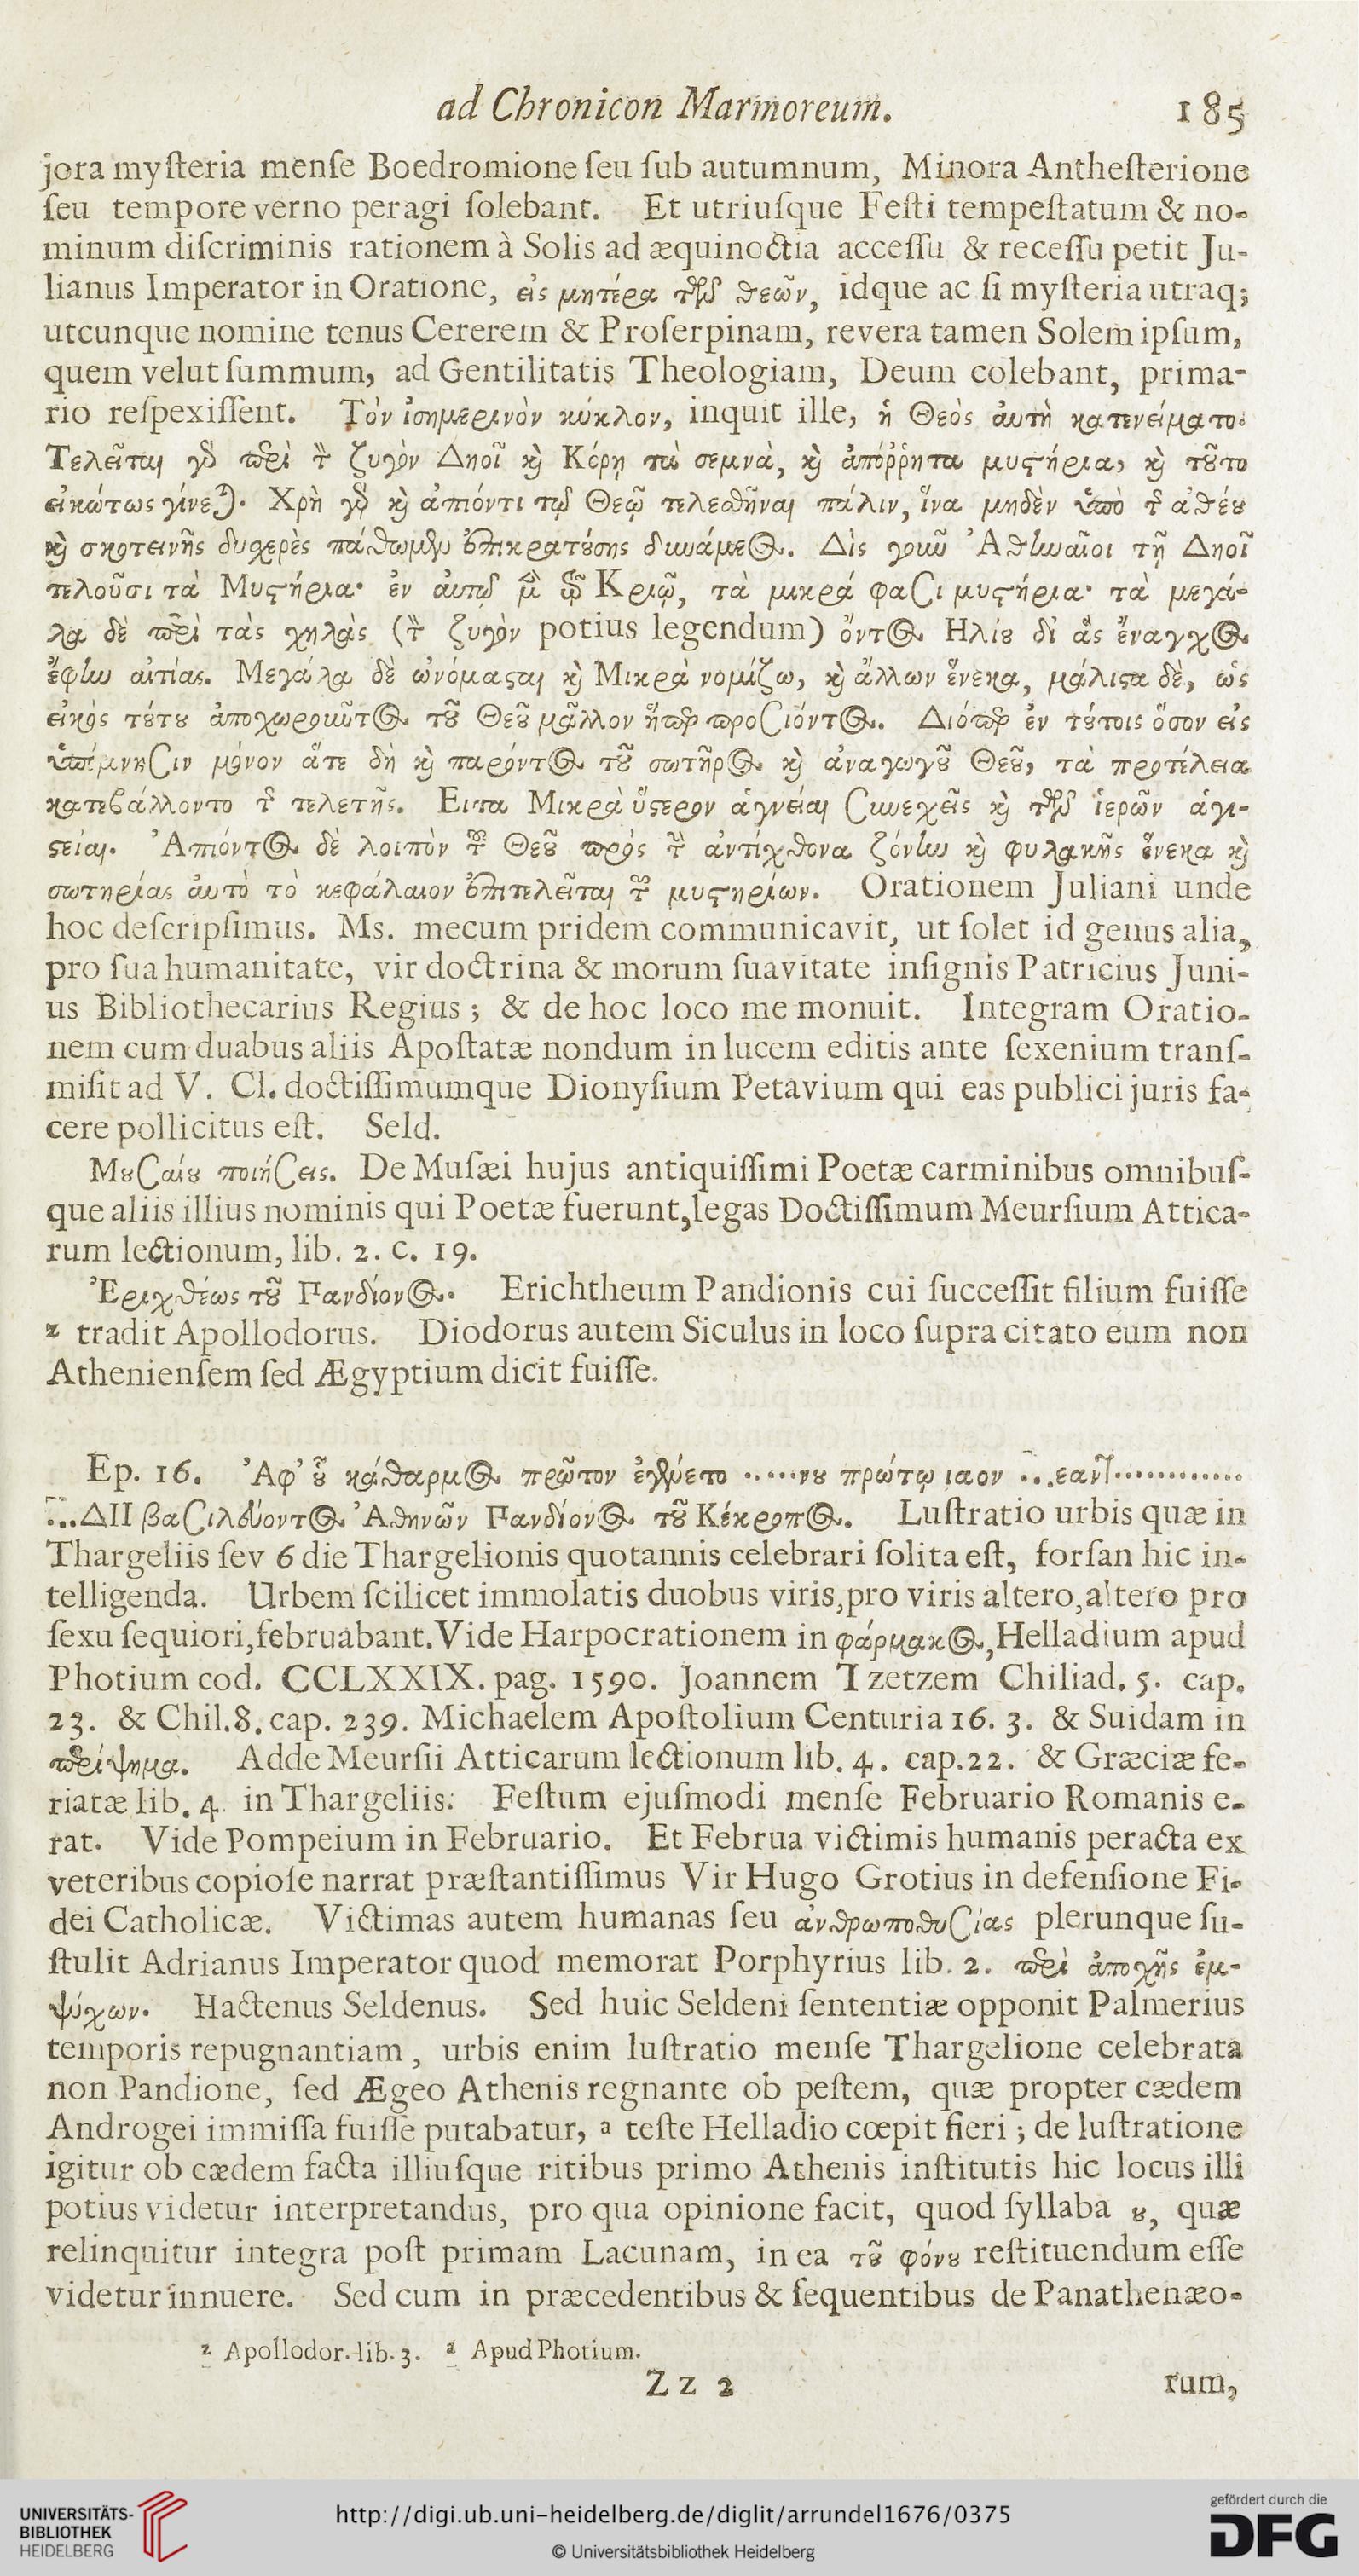 ad Chronicon Marmoreum. 185
jora mysteria mense Boedromione seu sub autumnum, Minora Anthesterione
seu tempore verno peragi solebant. Et utriusque Festi tempestatum & no-
minum discriminis rationem à Solis ad æquinoctia accessu & recessu petit Ju-
lianus Imperator in Oratione, εἰς μητέρα τῶν θεῶν, idque ac si mysteria utraq;
utcunque nomine tenus Cererem & Proserpinam, revera tamen Solem ipsum,
quem velut summum, ad Gentilitatis Theologiam, Deum colebant, prima-
rio respexissent. Τὸν ἰσημερινὸν κύκλον, inquit ille, ἡ Θεὸς ἀυτὴ κατενείματο.
Τελεῖται γὸ περὶ τ̀ ζυγὸν Δηοῖ κὴ Κόρῃ τὰ σεμνὰ, κὴ ἀπόῤῥητα μυςήρια, κὴ τȣ͂το
εἰκότως γίνεται. Χρὴ γὸ κὴ ἀπιόντι τῷ Θεῷ τελεσθῆναι πάλιν, ἵνα μηδὲν ὑπὸ τ̂ ἀθέȣ
κὴ σκοτεινῆς δυχερὲς πάθωμεν ἐπικρατȣ́σης δυνάμεως. Δὶς γοιῶ Ἀθηναῖοι τῇ Δηοῖ
τελοῦσι τὰ Μυςήρια· ἐν ἀυτῷ μ̀ τῷ Κριῷ, τὰ μικρά φασι μυςήρια· τὰ μεγά-
λα δὲ περὶ τὰς χηλὰς (τ̀ ζυγὸν potius legendum) ὄντος Ηλίȣ δἰ ἃς ἔναγχος
ἔφην αἰτίας. Μεγάλα δὲ ὠνόμαςαι κὴ Μικρὰ νομίζω, κὴ ἄλλων ἕνεκα, μάλιςα δὲ, ὡς
εἰκὸς τȣ́τȣ ἀποχωροιῶτος τȣ͂ Θεȣ͂ μᾶλλον ἤπερ προσιόντος. Διόπερ ἐν τȣ́τοις ὅσον εἰς
ὑπόμνησιν μόνον ἅτε δὴ κὴ παρόντος τȣ͂ σωτῆρος κὴ ἀναγωγȣ͂ Θεȣ͂, τὰ προτέλεια
κατεβάλλοντο τ̂ τελετῆς. Ειτα Μικρὰ ὕςερον ἁγνείαι συνεχεῖς κὴ τῶν ἱερῶν ἁγι-
ςείαι. Ἀπιόντος δὲ λοιπὸν τȣ͂ Θεȣ͂ πρὸς τ̀ ἀντίχθονα ζόνην κὴ φυλακῆς ἕνεκα κὴ
σωτηρίας ἀυτὸ τὸ κεφάλαιον ἐπιτελεῖται τ̃ μυςηρίων. Orationem Juliani unde
hoc descripsimus. Ms. mecum pridem communicavit, ut solet id genus alia,
pro sua humanitate, vir doctrina & morum suavitate insignis Patricius Juni-
us Bibliothecarius Regius; & de hoc loco me monuit. Integram Oratio-
nem cum duabus aliis Apostatæ nondum in lucem editis ante sexenium trans-
misit ad V. Cl. doctissimumque Dionysium Petavium qui eas publici juris fa-
cere pollicitus est. Seld.
Μȣσαίȣ ποιήσεις. De Musæi hujus antiquissimi Poetæ carminibus omnibus-
que aliis illius nominis qui Poetæ fuerunt, legas Doctissimum Meursium Attica-
rum lectionum, lib. 2. c. 19.
Ἐριχθέως τȣ͂ Πανδίονος. Erichtheum Pandionis cui successit filium fuisse
z tradit Apollodorus. Diodorus autem Siculus in loco supra citato eum non
Atheniensem sed Ægyptium dicit fuisse.
Ep. 16. Ἀφ' ȣ̔͂ κάθαρμος πρῶτον ἐγένετο ......νȣ πρώτῳ ιαον ...εαντ............
...ΔΙΙ βασιλεύοντος Ἀθηνῶν Πανδίονος τȣ͂ Κέκροπος. Lustratio urbis quæ in
Thargeliis sev 6 die Thargelionis quotannis celebrari solita est, forsan hic in-
telligenda. Urbem scilicet immolatis duobus viris, pro viris altero, altero pro
sexu sequiori, februabant. Vide Harpocrationem in φάρμακος, Helladium apud
Photium cod. CCLXXIX. pag. 1590. Joannem Tzetzem Chiliad. 5. cap.
23. & Chil. 8. cap. 239. Michaelem Apostolium Centuria 16. 3. & Suidam in
περίψημα. Adde Meursii Atticarum lectionum lib. 4. cap. 22. & Græciæ fe-
riatæ lib. 4. in Thargeliis. Festum ejusmodi mense Februario Romanis e-
rat. Vide Pompeium in Februario. Et Februa victimis humanis peracta ex
veteribus copiose narrat præstantissimus Vir Hugo Grotius in defensione Fi-
dei Catholicæ. Victimas autem humanas seu ἀνθρωποθυσίας plerunque su-
stulit Adrianus Imperator quod memorat Porphyrius lib. 2. περὶ ἀποχῆς ἐμ-
ψύχων. Hactenus Seldenus. Sed huic Seldeni sententiæ opponit Palmerius
temporis repugnantiam, urbis enim lustratio mense Thargelione celebrata
non Pandione, sed Ægeo Athenis regnante ob pestem, quæ propter cædem
Androgei immissa fuisse putabatur, a teste Helladio cœpit fieri; de lustratione
igitur ob cædem facta illiusque ritibus primo Athenis institutis hic locus illi
potius videtur interpretandus, pro qua opinione facit, quod syllaba ȣ, quæ
relinquitur integra post primam Lacunam, in ea τȣ͂ φόνȣ restituendum esse
videtur innuere. Sed cum in præcedentibus & sequentibus de Panathenæo-
z Apollodor. lib. 3. a Apud Photium.
Zz 2 rum,
UNIVERSITÄTS-
BIBLIOTHEK
HEIDELBERG
http://digi.ub.uni-heidelberg.de/diglit/arrundel1676/0375
© Universitätsbibliothek Heidelberg
gefördert durch die
DFG